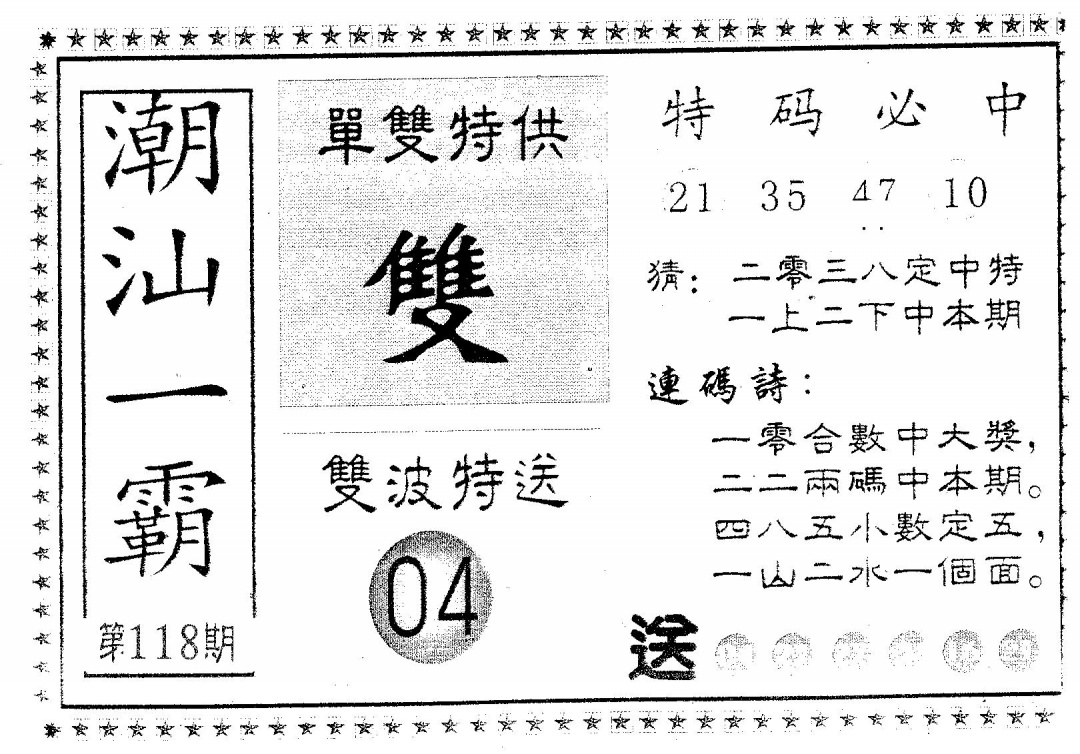 潮汕一霸
第118期
單雙特供
雙
雙波特送
04
特码必中
21 35 47 10
猜：二零三八定中特
一上二下中本期
連碼詩：
一零合數中大獎，
二二兩碼中本期。
四八五小數定五，
一山二水一個面。
送